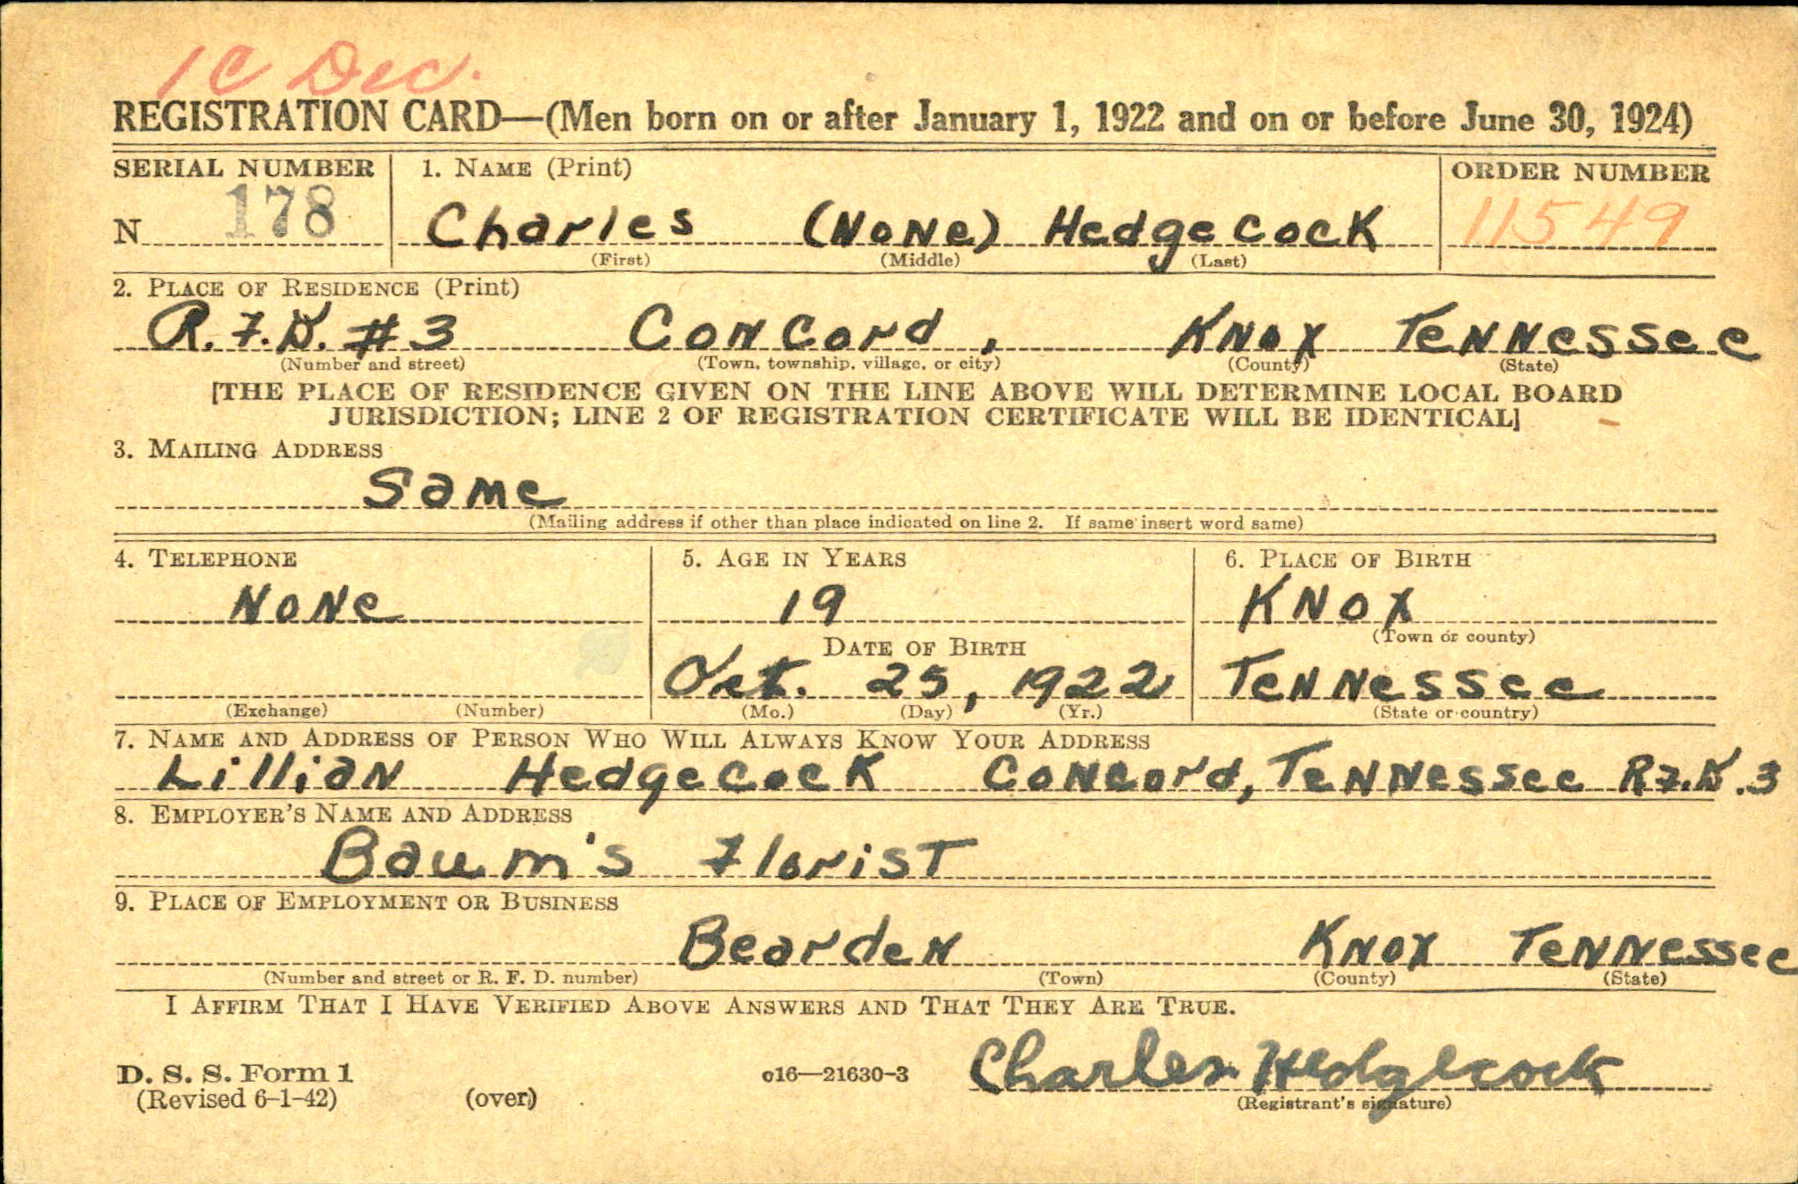 1C Dec.
REGISTRATION CARD—(Men born on or after January 1, 1922 and on or before June 30, 1924)
SERIAL NUMBER 1. NAME (Print) ORDER NUMBER
N 178 Charles (NoNe) Hedgecock 11549
(First) (Middle) (Last)
2. PLACE OF RESIDENCE (Print)
R.F.D. #3 Concord, Knox Tennessee
(Number and street) (Town, township, village, or city) (County) (State)
[THE PLACE OF RESIDENCE GIVEN ON THE LINE ABOVE WILL DETERMINE LOCAL BOARD
JURISDICTION; LINE 2 OF REGISTRATION CERTIFICATE WILL BE IDENTICAL]
3. MAILING ADDRESS
Same
(Mailing address if other than place indicated on line 2. If same insert word same)
4. TELEPHONE 5. AGE IN YEARS 6. PLACE OF BIRTH
None 19 Knox
(Town or county)
DATE OF BIRTH
Oct. 25, 1922 Tennessee
(Exchange) (Number) (Mo.) (Day) (Yr.) (State or country)
7. NAME AND ADDRESS OF PERSON WHO WILL ALWAYS KNOW YOUR ADDRESS
Lillian Hedgecock Concord, Tennessee R.F.D. 3
8. EMPLOYER'S NAME AND ADDRESS
Baum's Florist
9. PLACE OF EMPLOYMENT OR BUSINESS
Bearden Knox Tennessee
(Number and street or R. F. D. number) (Town) (County) (State)
I AFFIRM THAT I HAVE VERIFIED ABOVE ANSWERS AND THAT THEY ARE TRUE.
Charles Hedgecock
D. S. S. Form 1 c16—21630-3
(Revised 6-1-42) (over) (Registrant's signature)